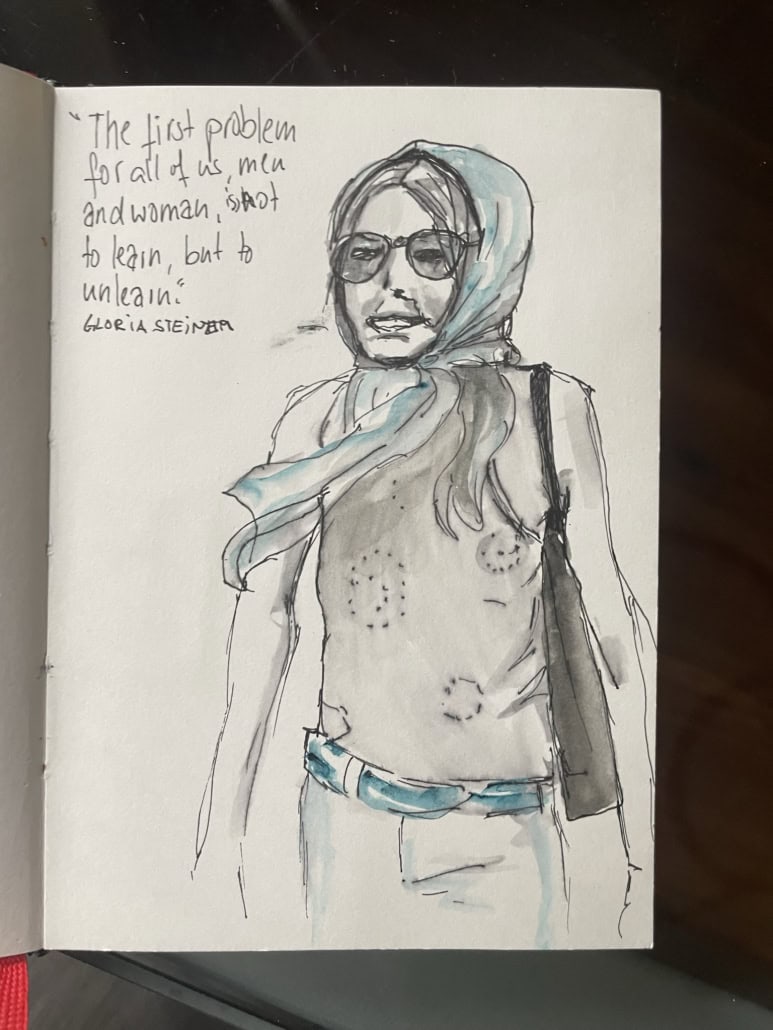 "The first problem
for all of us, men
and woman, is not
to learn, but to
unlearn."
GLORIA STEINEM